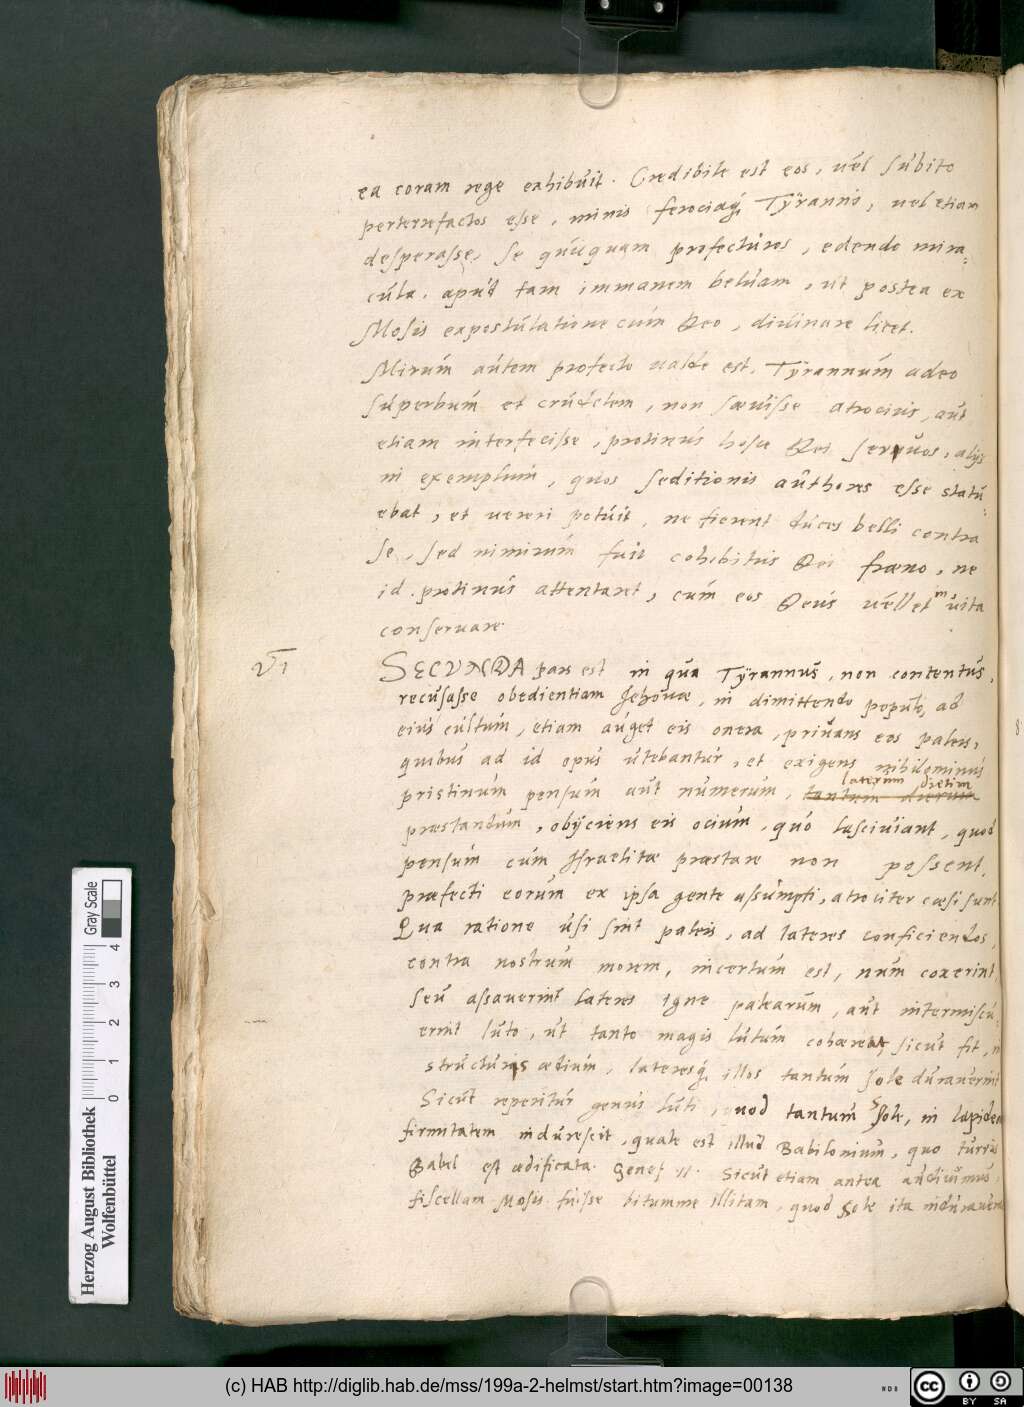 ea coram rege exhibuit. Credibile est eos, vel subito
perterrefactos esse, minis ferociaq́; Tÿranni, vel etiam
desperasse, se quicquam profecturos, edendo mira=
cula. apud tam immanem beluam, ut postea ex
Mosis expostulatione cum Deo, divinare licet.
Mirum autem profecto valde est. Tÿrannum adeo
superbum et crudelem, non sævisse atrocius, aut
etiam interfecisse, protinus hosce Dei servos, alijs
in exemplum, quos seditionis authores esse statu=
ebat, et vereri potuit, ne fierent duces belli contra
se, sed nimirum fuit cohibitus Dei fræno, ne
id protinus attentaret, cum eos Deus vellet in vita
conservare.
VI SECVNDA pars est in qua Tÿrannus, non contentus,
recusasse obedientiam Jehovæ, in dimittendo populo, ad
eius cultum, etiam auget eis onera, privans eos paleis,
quibus ad id opus utebantur, et exigens nihilominus
laterum dietim
pristinum pensum aut numerum, tantum dierum
præstandum, obijciens eis ocium, quo lasciviant, quod
pensum cum Israelitæ præstare non possent,
præfecti eorum ex ipsa gente assumpti, atrociter cæsi sunt
Qua ratione usi sint paleis, ad lateres conficiendos,
contra nostrum morem, incertum est, num coxerint,
seu assaverint lateres igne palearum, aut intermiscu=
erint luto, ut tanto magis lutum cohæreret, sicut fit, in
structuris ædium, lateresq́; illos tantum sole duraverint
Sicut reperitur genus luti, quod tantum Sole, in lapidem
firmitatem indurescit, quale est illud Babilonium, quo turris
Babel est ædificata. Genes 11. Sicut etiam antea audivimus,
fiscellam Mosis fuisse bitumine illitam, quod Sole ita induraverat
Herzog August Bibliothek
Wolfenbüttel
0 1 2 3 4
Gray Scale
(c) HAB http://diglib.hab.de/mss/199a-2-helmst/start.htm?image=00138
cc BY SA